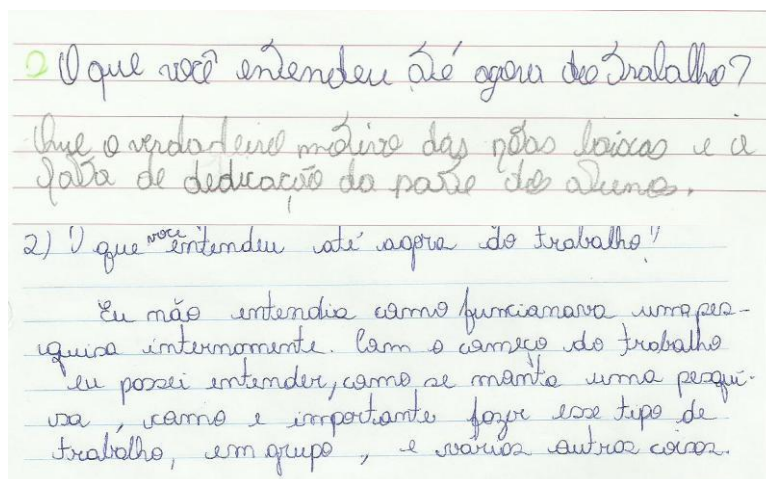 2 O que você entendeu até agora do trabalho?
Que o verdadeiro motivo das notas baixas e a
falta de dedicação da parte dos alunos.
2) O que você entendeu até agora do trabalho?
Eu não entendia como funcionava uma pes-
quisa internamente. Com o começo do trabalho
eu passei entender, como se monta uma pesqui-
sa, como e importante fazer esse tipo de
trabalho, em grupo, e várias outras coisas.